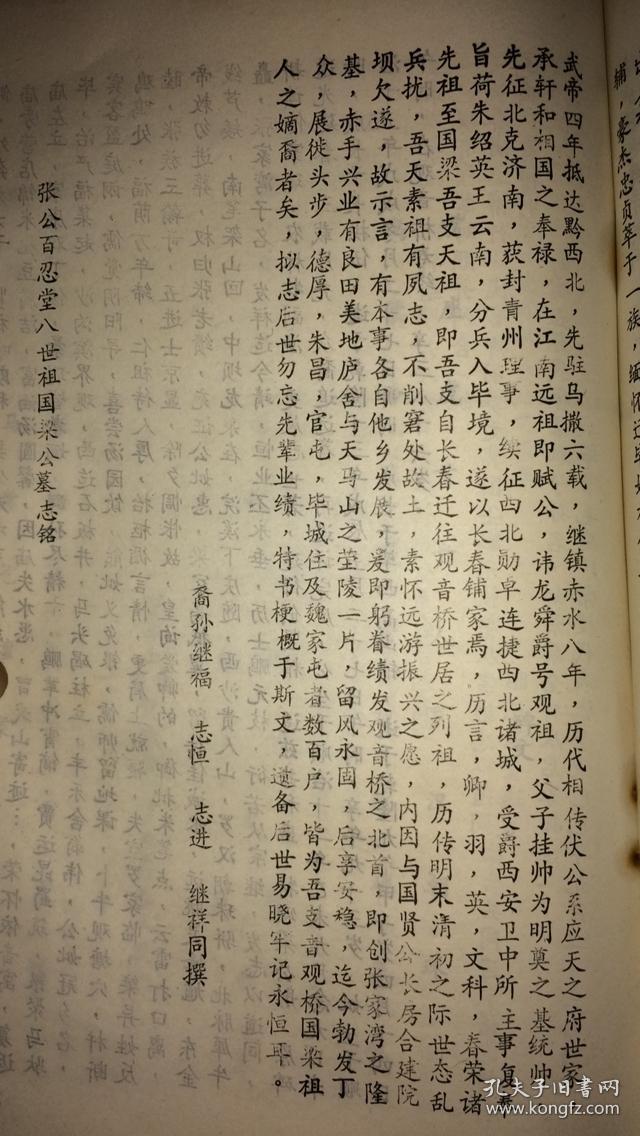 武帝四年抵达黔西北，先驻乌撒六载，继镇赤水八年，历代相传伏公系应天之府世家，
承轩和相国之奉禄，在江南远祖即赋公，讳龙舜爵号观祖，父子挂帅为明奠之基统帅，
先征北克济南，获封青州理事，续征西北勋卓连捷西北诸城，受爵西安卫中所主事复奉
旨荷朱绍英王云南，分兵入毕境，遂以长春铺家焉，历言，卿，羽，英，文科，春荣诸
先祖至国梁吾支天祖，即吾支自长春迁往观音桥世居之列祖，历传明末清初之际世态乱
兵扰，吾天素祖有夙志，不削窘处故土，素怀远游振兴之愿，内因与国贤公长房合建院
坝欠遂，故示言，有本事各自他乡发展，爰即躬眷绩发观音桥之北首，即创张家湾之隆
基，赤手兴业有良田美地庐舍与天马山之茔陵一片，留风永固，后享安稳，迄今勃发丁
众，展徙头步，德厚，朱昌，官屯，毕城住及魏家屯者数百户，皆为吾支音观桥国梁祖
人之嫡裔者矣，拟志后世勿忘先辈业绩，特书梗概于斯文，遗备后世易晓牢记永恒耳。
裔孙继福 志恒 志进 继祥同撰
张公百忍堂八世祖国梁公墓志铭
孔夫子旧书网
www.kongfz.com